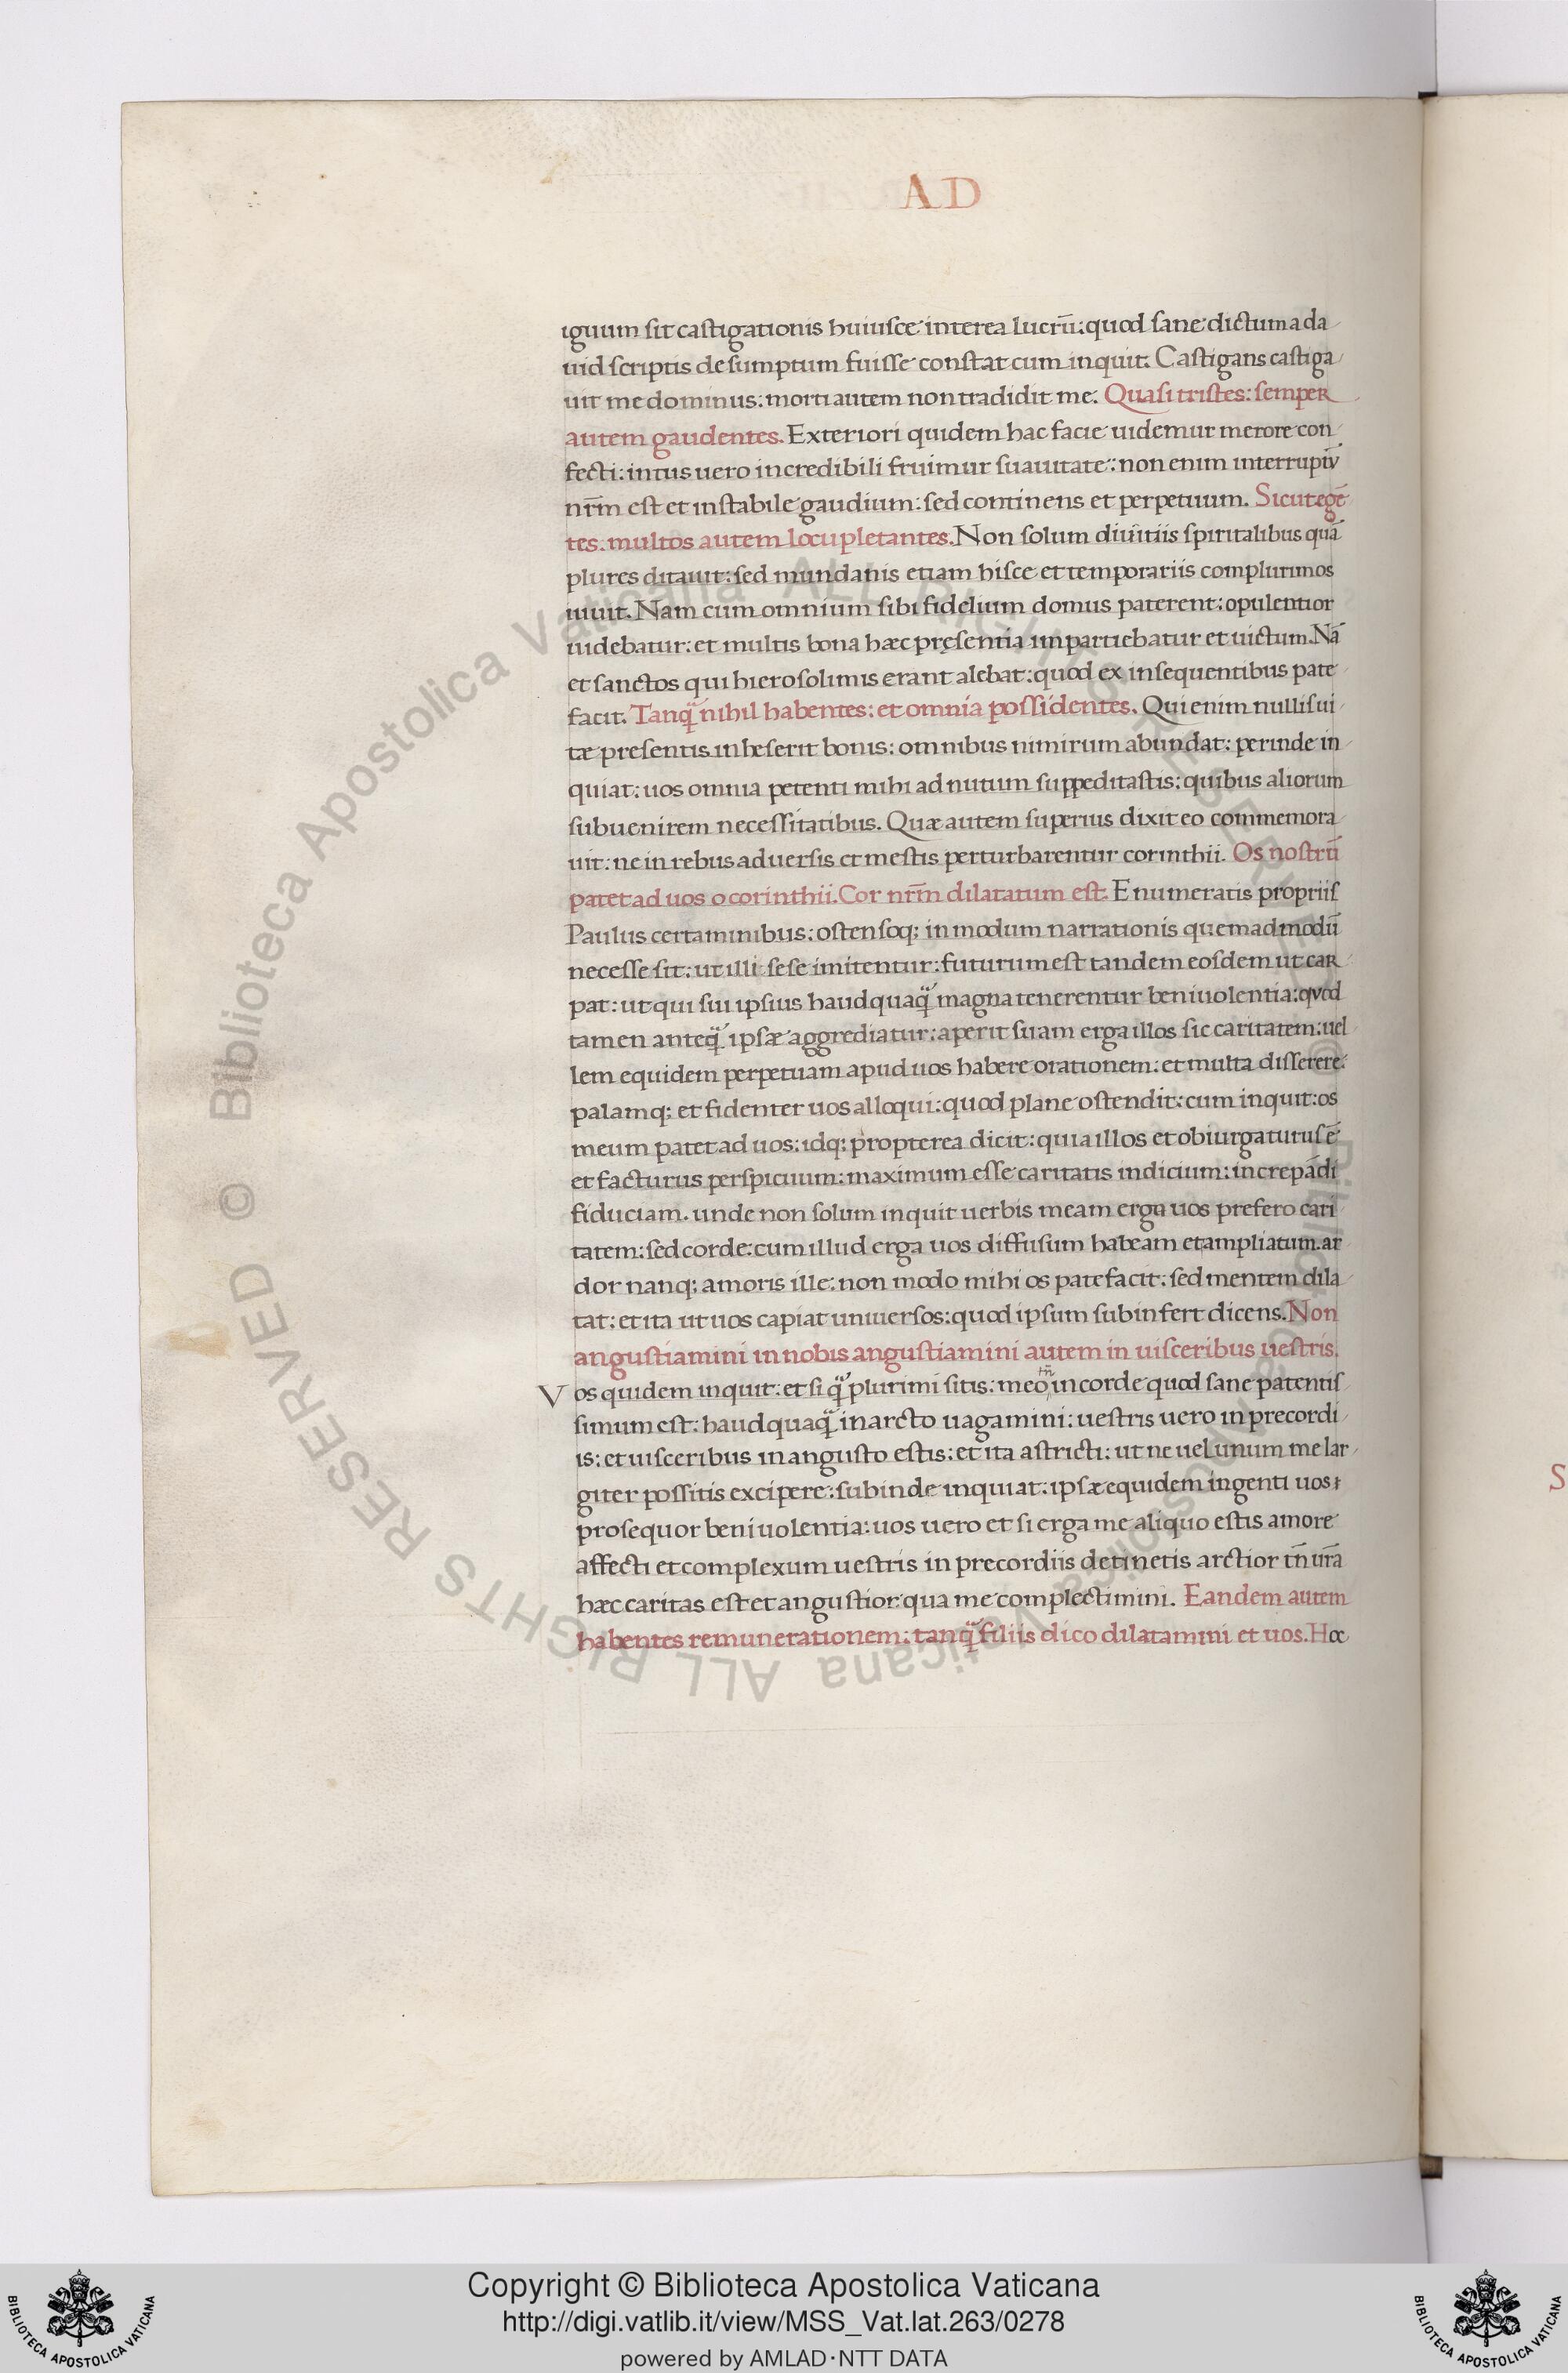 AD
iguum sit castigationis huiusce interea lucrū: quod sane dictum a da
uid scriptis desumptum fuisse constat cum inquit. Castigans castiga
uit me dominus: morti autem non tradidit me. Quasi tristes: semper
autem gaudentes. Exteriori quidem hac facie uidemur merore con
fecti: intus uero incredibili fruimur suauitate: non enim interruptū
nrm̄ est et instabile gaudium: sed continens et perpetuum. Sicut egē
tes. multos autem locupletantes. Non solum diuitiis spiritalibus quā
plures ditauit: sed mundanis etiam hisce et temporariis complurimos
iuuit. Nam cum omnium sibi fidelium domus paterent: opulentior
uidebatur: et multis bona hæc pręsentia impartiebatur et uictum. Nā
et sanctos qui hierosolimis erant alebat: quod ex insequentibus pate
facit. Tanq̄ nihil habentes: et omnia possidentes. Qui enim nulli sui
tæ presentis inheserit bonis: omnibus nimirum abundat: perinde in
quiat: uos omnia petenti mihi ad nutum suppeditastis: quibus aliorum
subuenirem necessitatibus. Quæ autem superius dixit eo commemora
uit: ne in rebus aduersis et mestis perturbarentur corinthii. Os nostrū
patet ad uos o corinthii. Cor nrm̄ dilatatum est. Enumeratis propriis
Paulus certaminibus: ostensoq; in modum narrationis quemadmodū
necesse sit: ut illi sese imitentur: futurum est tandem eosdem ut car
pat: ut qui sui ipsius haudquaq̄ magna tenerentur beniuolentia: quod
tamen anteq̄ ipsæ aggrediatur: aperit suam erga illos sic caritatem: uel
lem equidem perpetuam apud uos habere orationem: et multa disserere:
palamq; et fidenter uos alloqui: quod plane ostendit: cum inquit: os
meum patet ad uos: idq; propterea dicit: quia illos et obiurgaturus ē
et facturus perspicuum: maximum esse caritatis indicium: increpādi
fiduciam. unde non solum inquit uerbis meam erga uos prefero cari
tatem: sed corde: cum illud erga uos diffusum habeam et ampliatum. ar
dor nanq; amoris ille: non modo mihi os patefacit: sed mentem dila
tat: et ita ut uos capiat uniuersos: quod ipsum subinfert dicens. Non
angustiamini in nobis angustiamini autem in uisceribus uestris.
Vos quidem inquit: et si q̄ plurimi sitis: meo tn̄ in corde quod sane patentis
simum est: haudquaq̄ in arcto uagamini: uestris uero in precordi
is: et uisceribus in angusto estis: et ita astricti: ut ne uel unum me lar
giter possitis excipere: subinde inquiat: ipsæ equidem ingenti uos
prosequor beniuolentia: uos uero et si erga me aliquo estis amore
affecti et complexum uestris in precordiis detinetis arctior tn̄ ur̄a
hæc caritas est et angustior: qua me complectimini. Eandem autem
habentes remunerationem: tanq̄ filiis dico dilatamini et uos. Hoc
S
© Biblioteca Apostolica Vaticana ALL RIGHTS RESERVED
© Biblioteca Apostolica Vaticana ALL RIGHTS RESERVED
BIBLIOTECA APOSTOLICA VATICANA
Copyright © Biblioteca Apostolica Vaticana
http://digi.vatlib.it/view/MSS_Vat.lat.263/0278
powered by AMLAD·NTT DATA
BIBLIOTECA APOSTOLICA VATICANA